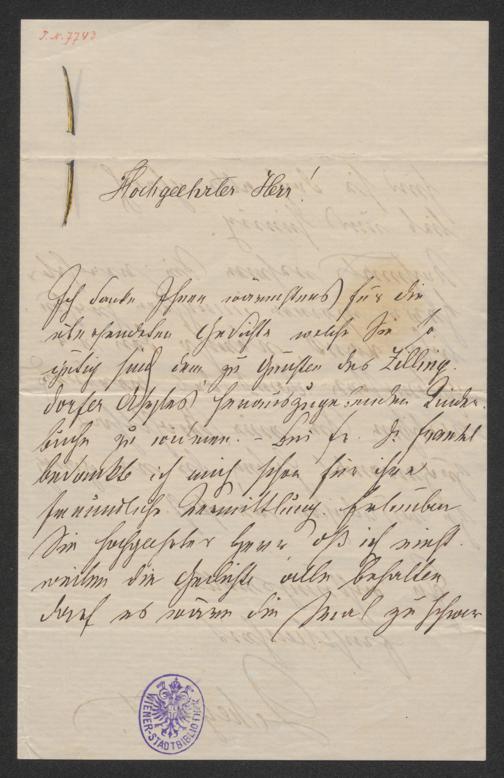 J.N. 7743
Hochgeehrter Herr!
Ich danke Ihnen wärmstens für die
übersendeten Gedichte welche Sie so
gütig sind dem zu Gunsten des Zilling-
dorfer Asyles herauszugebenden Kinder-
buche zu widmen. – Bei Fr. Dr. Frankl
bedankte ich mich schon für ihre
freundliche Vermittlung. Erlauben
Sie hochgeehrter Herr daß ich einst-
weilen die Gedichte alle behalten
darf es wäre die Wal zu schwer
WIENER-STADTBIBLIOTHEK